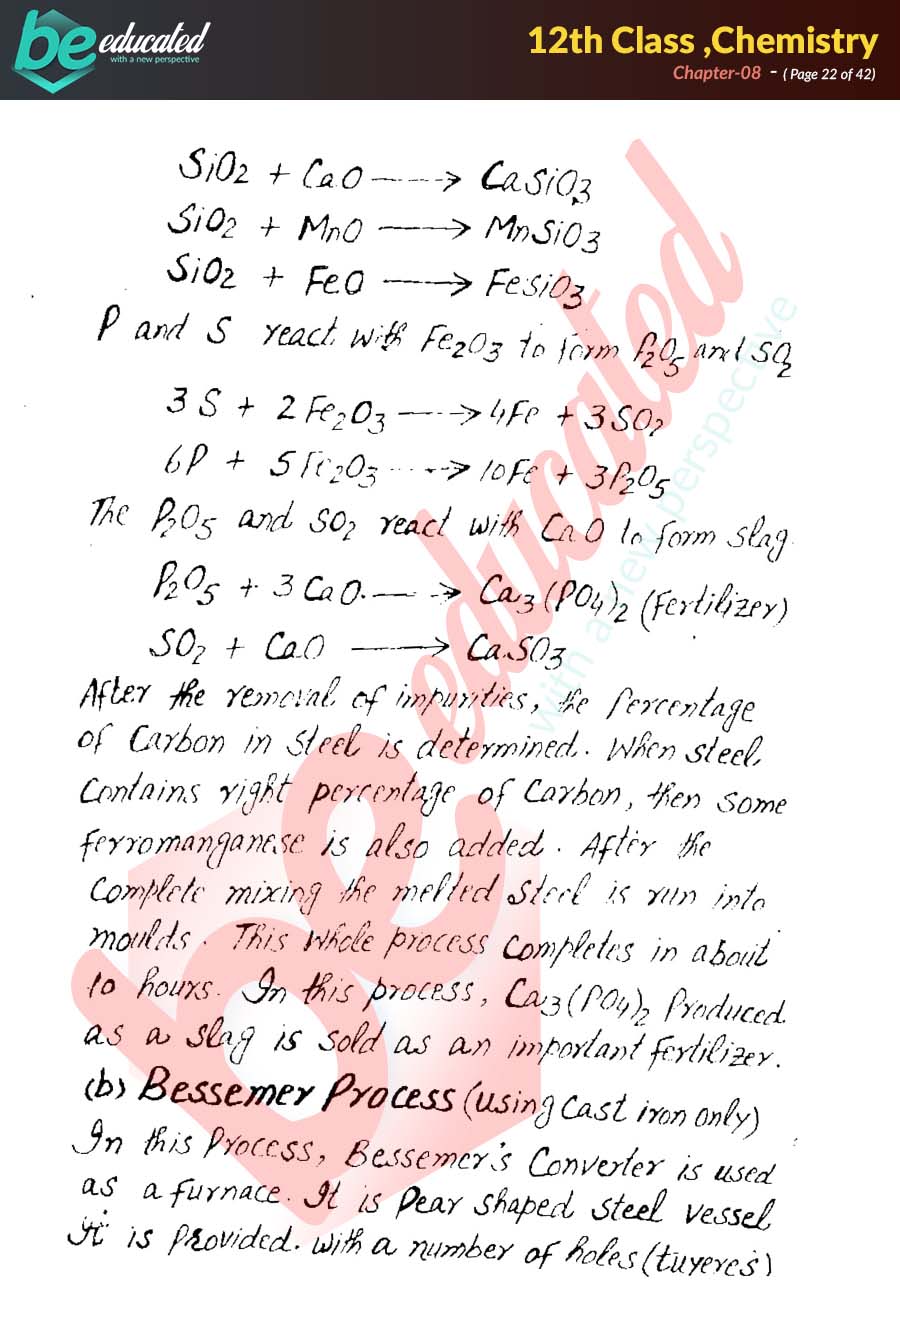 be educated
with a new perspective
12th Class ,Chemistry
Chapter-08 - ( Page 22 of 42)
SiO2 + CaO ----> CaSiO3
SiO2 + MnO ⟶ MnSiO3
SiO2 + FeO ⟶ FeSiO3
P and S react with Fe2O3 to form P2O5 and SO2
3S + 2Fe2O3 ----> 4Fe + 3SO2
6P + 5Fe2O3 ----> 10Fe + 3P2O5
The P2O5 and SO2 react with CaO to form slag.
P2O5 + 3CaO ----> Ca3(PO4)2 (Fertilizer)
SO2 + CaO ⟶ CaSO3
After the removal of impurities, the percentage
of Carbon in steel is determined. When steel
Contains right percentage of Carbon, then some
ferromanganese is also added. After the
Complete mixing the melted steel is run into
moulds. This whole process completes in about
10 hours. In this process, Ca3(PO4)2 Produced
as a slag is sold as an important fertilizer.
(b) Bessemer Process (using cast iron only)
In this Process, Bessemer's Converter is used
as a furnace. It is Pear shaped steel vessel
It is Provided. with a number of holes (tuyeres)
be educated
with a new perspective